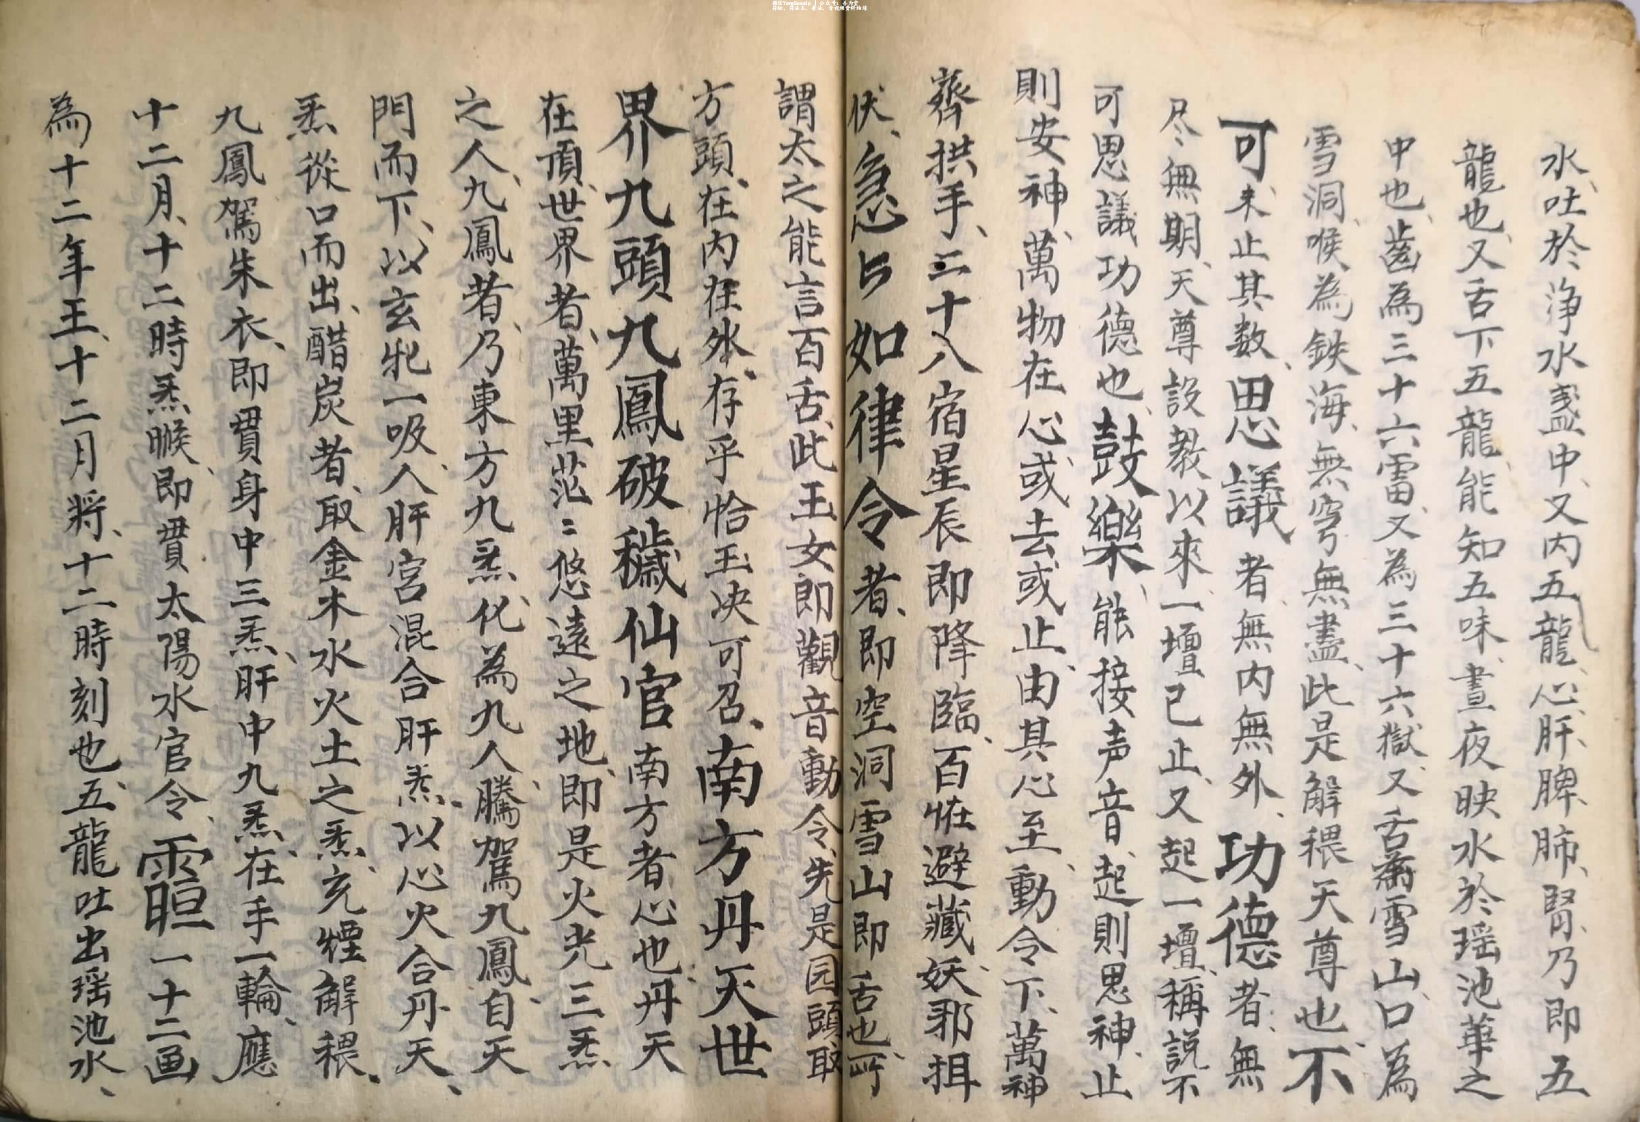 水、吐於淨水盞中、又內五龍、心肝脾肺腎、乃即五
龍也、又舌下五龍、能知五味、晝夜映水於瑶池華之
中也、齒為三十六雷、又為三十六獄、又舌為雪山、口為
雪洞、喉為鉄海、無穹無盡、此是解穢天尊也、不
可未止其数、思議者、無内無外、功德者、無
尽無期、天尊設教以來、一壇已止、又起一壇、稱説不
可思議功德也、鼓樂、能接声音、起則思神、止
則安神、萬物在心、或去或止、由其心至、動令下、萬神
齊拱手、二十八宿星辰即降臨、百怪避藏妖邪揖
伏、急急如律令者、即空洞雪山、即舌也、所
謂太之能言百舌、此玉女即觀音動令、先是园頭取
方頭、在内在外、存乎恰玉决可召、南方丹天世
界九頭九鳳破穢仙官南方者心也、丹天
在頂、世界者、萬里茫〻悠遠之地、即是火光三炁
之人、九鳳者、乃東方九炁、化為九人、騰駕九鳳、自天
門而下、以玄牝一吸、入肝宮混合肝炁、以心火合丹天、
炁從口而出、醋炭者、取金木水火土之炁、充煙解穢、
九鳳駕朱衣、即貫身中三炁、肝中九炁、在手一輪、應
十二月、十二時炁㬋、即貫太陽水官令、䨔一十二画
為十二年王、十二月將、十二時刻也、五龍吐出瑶池水、